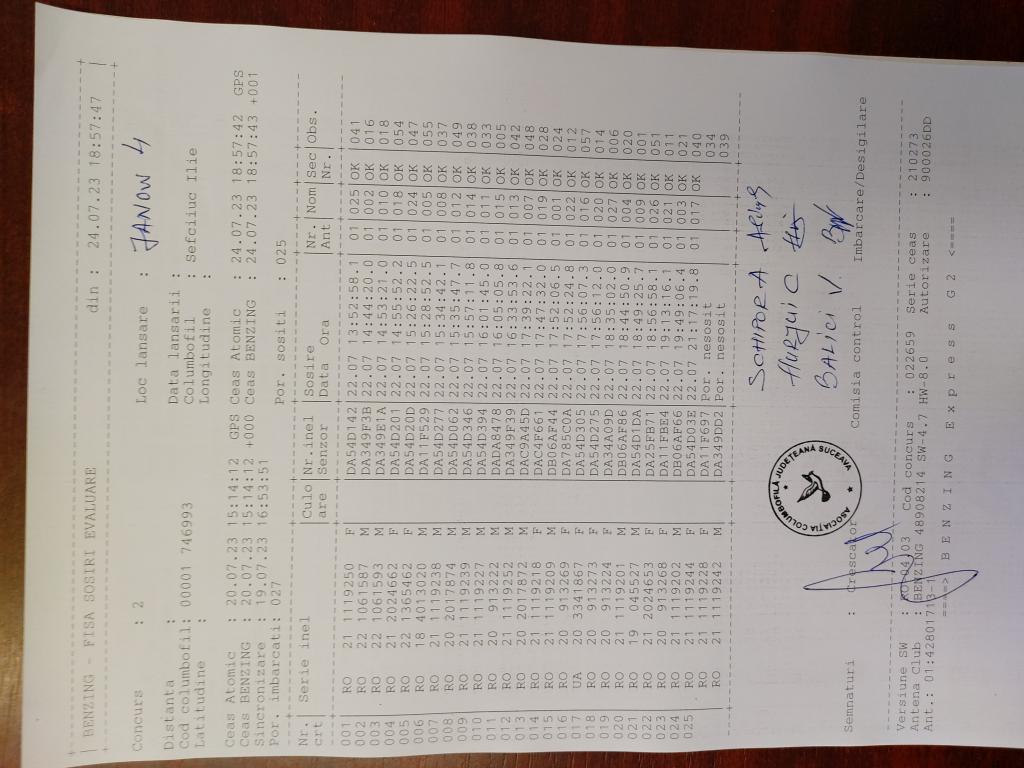 BENZING - FISA SOSIRI EVALUARE din : 24.07.23 18:57:47
Concurs : 2 Loc lansare : JANOW 4
Distanta : Data lansarii :
Cod columbofil: 00001 746993 Columbofil : Sefciiuc Ilie
Latitudine : Longitudine :
Ceas Atomic : 20.07.23 15:14:12 GPS Ceas Atomic : 24.07.23 18:57:42 GPS
Ceas BENZING : 20.07.23 15:14:12 +000 Ceas BENZING : 24.07.23 18:57:43 +001
Sincronizare : 19.07.23 16:53:51
Por. imbarcati: 027 Por. sositi : 025
Nr. | Serie inel |Culo|Nr.inel |Sosire |Nr.|Nom|Sec|Obs.
crt |are |Senzor |Data Ora |Ant| |Nr.|
001 RO 21 1119250 F DA54D142 22.07 13:52:58.1 01 025 OK 041
002 RO 22 1061587 M DA349F3B 22.07 14:44:20.0 01 002 OK 016
003 RO 22 1061593 M DA349E1A 22.07 14:53:21.0 01 010 OK 018
004 RO 21 2024662 F DA54D201 22.07 14:55:52.2 01 018 OK 054
005 RO 22 1365462 F DA54D20D 22.07 15:26:22.5 01 024 OK 047
006 RO 18 4013020 M DA11F529 22.07 15:28:52.5 01 005 OK 055
007 RO 21 1119238 M DA54D277 22.07 15:34:42.1 01 008 OK 037
008 RO 20 2017874 M DA54D062 22.07 15:35:47.7 01 012 OK 049
009 RO 21 1119239 M DA54D346 22.07 15:57:11.8 01 014 OK 038
010 RO 21 1119227 M DA54D394 22.07 16:01:45.0 01 011 OK 033
011 RO 20 913222 M DADA8478 22.07 16:05:05.8 01 015 OK 005
012 RO 21 1119252 M DA349F39 22.07 16:33:53.6 01 013 OK 042
013 RO 20 2017872 M DAC9A45D 22.07 17:39:22.1 01 007 OK 048
014 RO 21 1119218 F DAC4F661 22.07 17:47:32.0 01 019 OK 028
015 RO 21 1119209 M DB06AF44 22.07 17:52:06.5 01 001 OK 024
016 RO 20 913269 F DA785C0A 22.07 17:52:24.8 01 022 OK 012
017 UA 20 3341867 F DA54D305 22.07 17:56:07.3 01 016 OK 057
018 RO 20 913273 F DA54D275 22.07 17:56:12.0 01 020 OK 014
019 RO 20 913224 M DA34A09D 22.07 18:35:02.0 01 027 OK 006
020 RO 21 1119201 M DB06AF86 22.07 18:44:50.9 01 004 OK 020
021 RO 19 045527 M DA54D1DA 22.07 18:49:25.7 01 009 OK 001
022 RO 21 2024653 F DA25FB71 22.07 18:56:58.1 01 026 OK 051
023 RO 20 913268 M DA11FBE4 22.07 19:13:16.1 01 021 OK 011
024 RO 21 1119202 M DB06AF66 22.07 19:49:06.4 01 003 OK 021
025 RO 21 1119244 F DA54D03E 22.07 21:17:19.8 01 017 OK 040
RO 21 1119228 F DA11F697 Por. nesosit 034
RO 21 1119242 M DA349DD2 Por. nesosit 039
SCHIPOR A
HURJUI C
BALICI V.
ASOCIAȚIA COLUMBOFILĂ JUDEȚEANĂ SUCEAVA
Semnaturi : Crescator Comisia control Imbarcare/Desigilare
Versiune SW : RO-04.03 Cod concurs : 02659 Serie ceas : 210273
Antena Club : BENZING 48908214 SW-4.7 HW-8.0 Autorizare : 900026DD
Ant.: 01:42801713-1
====> B E N Z I N G E x p r e s s G 2 <====